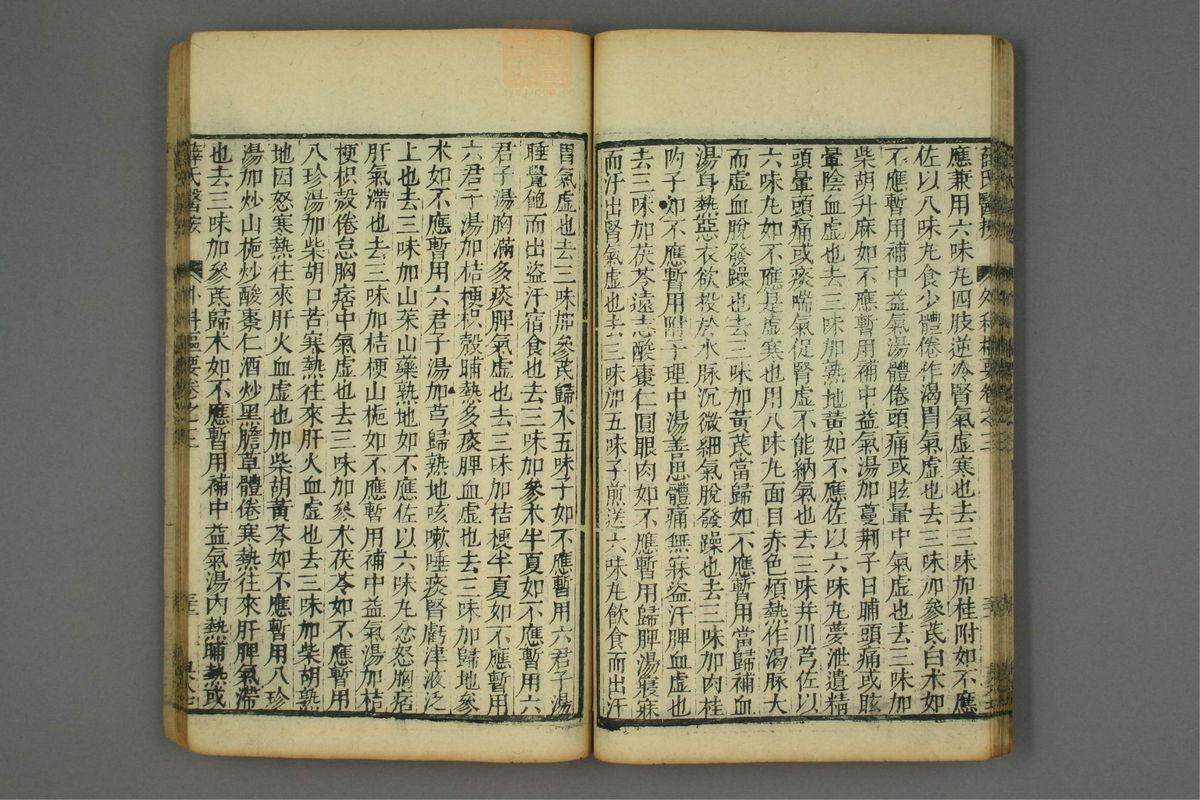 薛氏醫按 外科樞要卷之三
應兼用六味丸四肢逆冷腎氣虛寒也去三味加桂附如不應
佐以八味丸食少體倦作渴胃氣虛也去三味加參芪白朮如
不應暫用補中益氣湯體倦頭痛或眩暈中氣虛也去三味加
柴胡升麻如不應暫用補中益氣湯加蔓荆子日晡頭痛或眩
暈陰血虛也去三味加熟地黃如不應佐以六味丸夢泄遺精
頭暈頭痛或痰喘氣促腎虛不能納氣也去三味并川芎佐以
六味丸如不應是虛寒也用八味丸面目赤色煩熱作渴脉大
而虛血脫發躁也去三味加黃芪當歸如不應暫用當歸補血
湯身熱惡衣欲投於水脉沉微細氣脫發躁也去三味加肉桂
附子如不應暫用附子理中湯善思體痛無寐盗汗脾血虛也
去三味加茯苓遠志酸棗仁圓眼肉如不應暫用歸脾湯寢寐
而汗出腎氣虛也去三味加五味子煎送六味丸飲食而出汗
胃氣虛也去三味加參芪歸朮五味子如不應暫用六君子湯
睡覺飽而出盗汗宿食也去三味加參朮半夏如不應暫用六
君子湯胸滿多痰脾氣虛也去三味加桔梗半夏如不應暫用
六君子湯加桔梗枳殼晡熱多痰脾血虛也去三味加歸地參
朮如不應暫用六君子湯加芎歸熟地咳嗽唾痰腎虧津液泛
上也去三味加山茱山藥熟地如不應佐以六味丸忿怒胸痞
肝氣滯也去三味加桔梗山梔如不應暫用補中益氣湯加桔
梗枳殼倦怠胸痞中氣虛也去三味加參朮茯苓如不應暫用
八珍湯加柴胡口苦寒熱往來肝火血虛也去三味加柴胡熟
地因怒寒熱往來肝火血虛也加柴胡黃芩如不應暫用八珍
湯加炒山梔炒酸棗仁酒炒黑膽草體倦寒熱往來肝脾氣滯
也去三味加參芪歸朮如不應暫用補中益氣湯內熱晡熱或
薛氏醫按 外科樞要卷之三